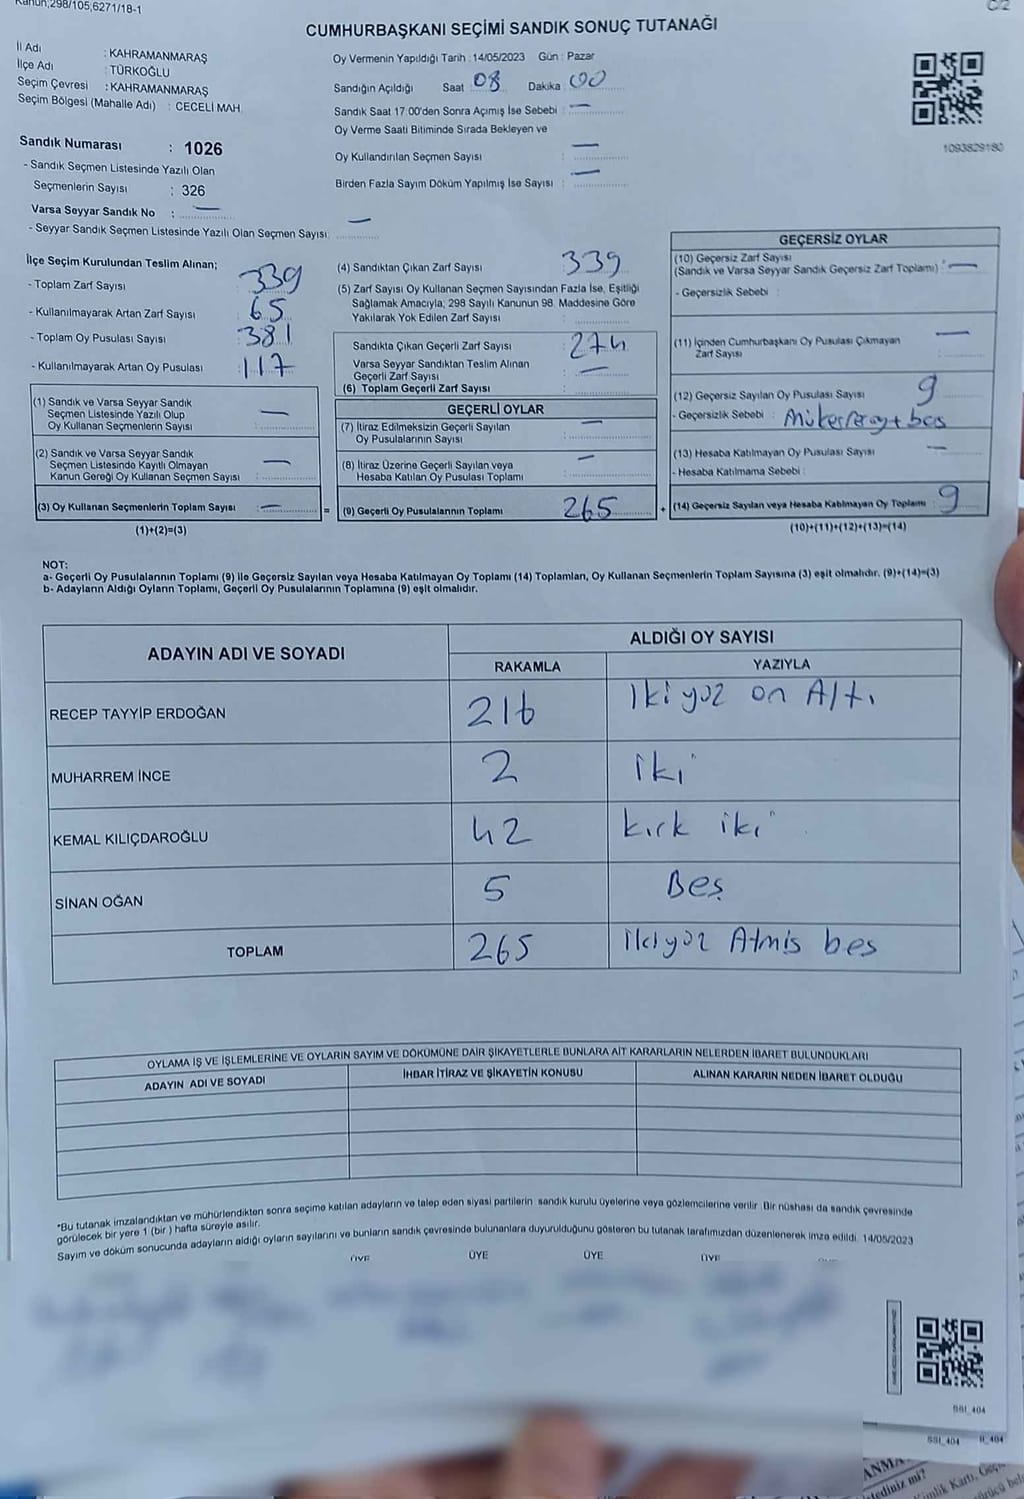 Kanun;298/105,6271/18-1
C/2
CUMHURBAŞKANI SEÇİMİ SANDIK SONUÇ TUTANAĞI
İl Adı : KAHRAMANMARAŞ
İlçe Adı : TÜRKOĞLU
Seçim Çevresi : KAHRAMANMARAŞ
Seçim Bölgesi (Mahalle Adı) : CECELİ MAH.
Oy Vermenin Yapıldığı Tarih : 14/05/2023 Gün : Pazar
Sandığın Açıldığı Saat 08 Dakika 00
Sandık Saat 17:00'den Sonra Açımış İse Sebebi : —
Oy Verme Saati Bitiminde Sırada Bekleyen ve
Oy Kullandırılan Seçmen Sayısı : —
Birden Fazla Sayım Döküm Yapılmış İse Sayısı : —
1093829180
Sandık Numarası : 1026
- Sandık Seçmen Listesinde Yazılı Olan
Seçmenlerin Sayısı : 326
Varsa Seyyar Sandık No : —
- Seyyar Sandık Seçmen Listesinde Yazılı Olan Seçmen Sayısı: —
İlçe Seçim Kurulundan Teslim Alınan;
- Toplam Zarf Sayısı : 339
- Kullanılmayarak Artan Zarf Sayısı : 65
- Toplam Oy Pusulası Sayısı : 381
- Kullanılmayarak Artan Oy Pusulası : 117
(1) Sandık ve Varsa Seyyar Sandık
Seçmen Listesinde Yazılı Olup
Oy Kullanan Seçmenlerin Sayısı : —
(2) Sandık ve Varsa Seyyar Sandık
Seçmen Listesinde Kayıtlı Olmayan
Kanun Gereği Oy Kullanan Seçmen Sayısı : —
(3) Oy Kullanan Seçmenlerin Toplam Sayısı : — =
(1)+(2)=(3)
(4) Sandıktan Çıkan Zarf Sayısı : 339
(5) Zarf Sayısı Oy Kullanan Seçmen Sayısından Fazla İse, Eşitliği
Sağlamak Amacıyla; 298 Sayılı Kanunun 98. Maddesine Göre
Yakılarak Yok Edilen Zarf Sayısı :
Sandıkta Çıkan Geçerli Zarf Sayısı : 274
Varsa Seyyar Sandıktan Teslim Alınan
Geçerli Zarf Sayısı : —
(6) Toplam Geçerli Zarf Sayısı :
GEÇERLİ OYLAR
(7) İtiraz Edilmeksizin Geçerli Sayılan
Oy Pusulalarının Sayısı : —
(8) İtiraz Üzerine Geçerli Sayılan veya
Hesaba Katılan Oy Pusulası Toplamı : —
(9) Geçerli Oy Pusulalarının Toplamı : 265 +
GEÇERSİZ OYLAR
(10) Geçersiz Zarf Sayısı
(Sandık ve Varsa Seyyar Sandık Geçersiz Zarf Toplamı) : —
- Geçersizlik Sebebi :
(11) İçinden Cumhurbaşkanı Oy Pusulası Çıkmayan
Zarf Sayısı : —
(12) Geçersiz Sayılan Oy Pusulası Sayısı : 9
- Geçersizlik Sebebi :
(13) Hesaba Katılmayan Oy Pusulası Sayısı : —
- Hesaba Katılmama Sebebi :
(14) Geçersiz Sayılan veya Hesaba Katılmayan Oy Toplamı : 9
(10)+(11)+(12)+(13)=(14)
NOT:
a- Geçerli Oy Pusulalarının Toplamı (9) ile Geçersiz Sayılan veya Hesaba Katılmayan Oy Toplamı (14) Toplamları, Oy Kullanan Seçmenlerin Toplam Sayısına (3) eşit olmalıdır. (9)+(14)=(3)
b- Adayların Aldığı Oyların Toplamı, Geçerli Oy Pusulalarının Toplamına (9) eşit olmalıdır.
ADAYIN ADI VE SOYADI ALDIĞI OY SAYISI
RAKAMLA YAZIYLA
RECEP TAYYİP ERDOĞAN 216 İkiyüz on Altı
MUHARREM İNCE 2 iki
KEMAL KILIÇDAROĞLU 42 kırk iki
SİNAN OĞAN 5 Beş
TOPLAM 265 ikiyüz Atmiş beş
OYLAMA İŞ VE İŞLEMLERİNE VE OYLARIN SAYIM VE DÖKÜMÜNE DAİR ŞİKAYETLERLE BUNLARA AİT KARARLARIN NELERDEN İBARET BULUNDUKLARI
ADAYIN ADI VE SOYADI İHBAR İTİRAZ VE ŞİKAYETİN KONUSU ALINAN KARARIN NEDEN İBARET OLDUĞU
*Bu tutanak imzalandıktan ve mühürlendikten sonra seçime katılan adayların ve talep eden siyasi partilerin sandık kurulu üyelerine veya gözlemcilerine verilir. Bir nüshası da sandık çevresinde
görülecek bir yere 1 (bir ) hafta süreyle asılır.
Sayım ve döküm sonucunda adayların aldığı oyların sayılarını ve bunların sandık çevresinde bulunanlara duyurulduğunu gösteren bu tutanak tarafımızdan düzenlenerek imza edildi. 14/05/2023
ÜYE ÜYE ÜYE ÜYE
SSI_404
SSI_404